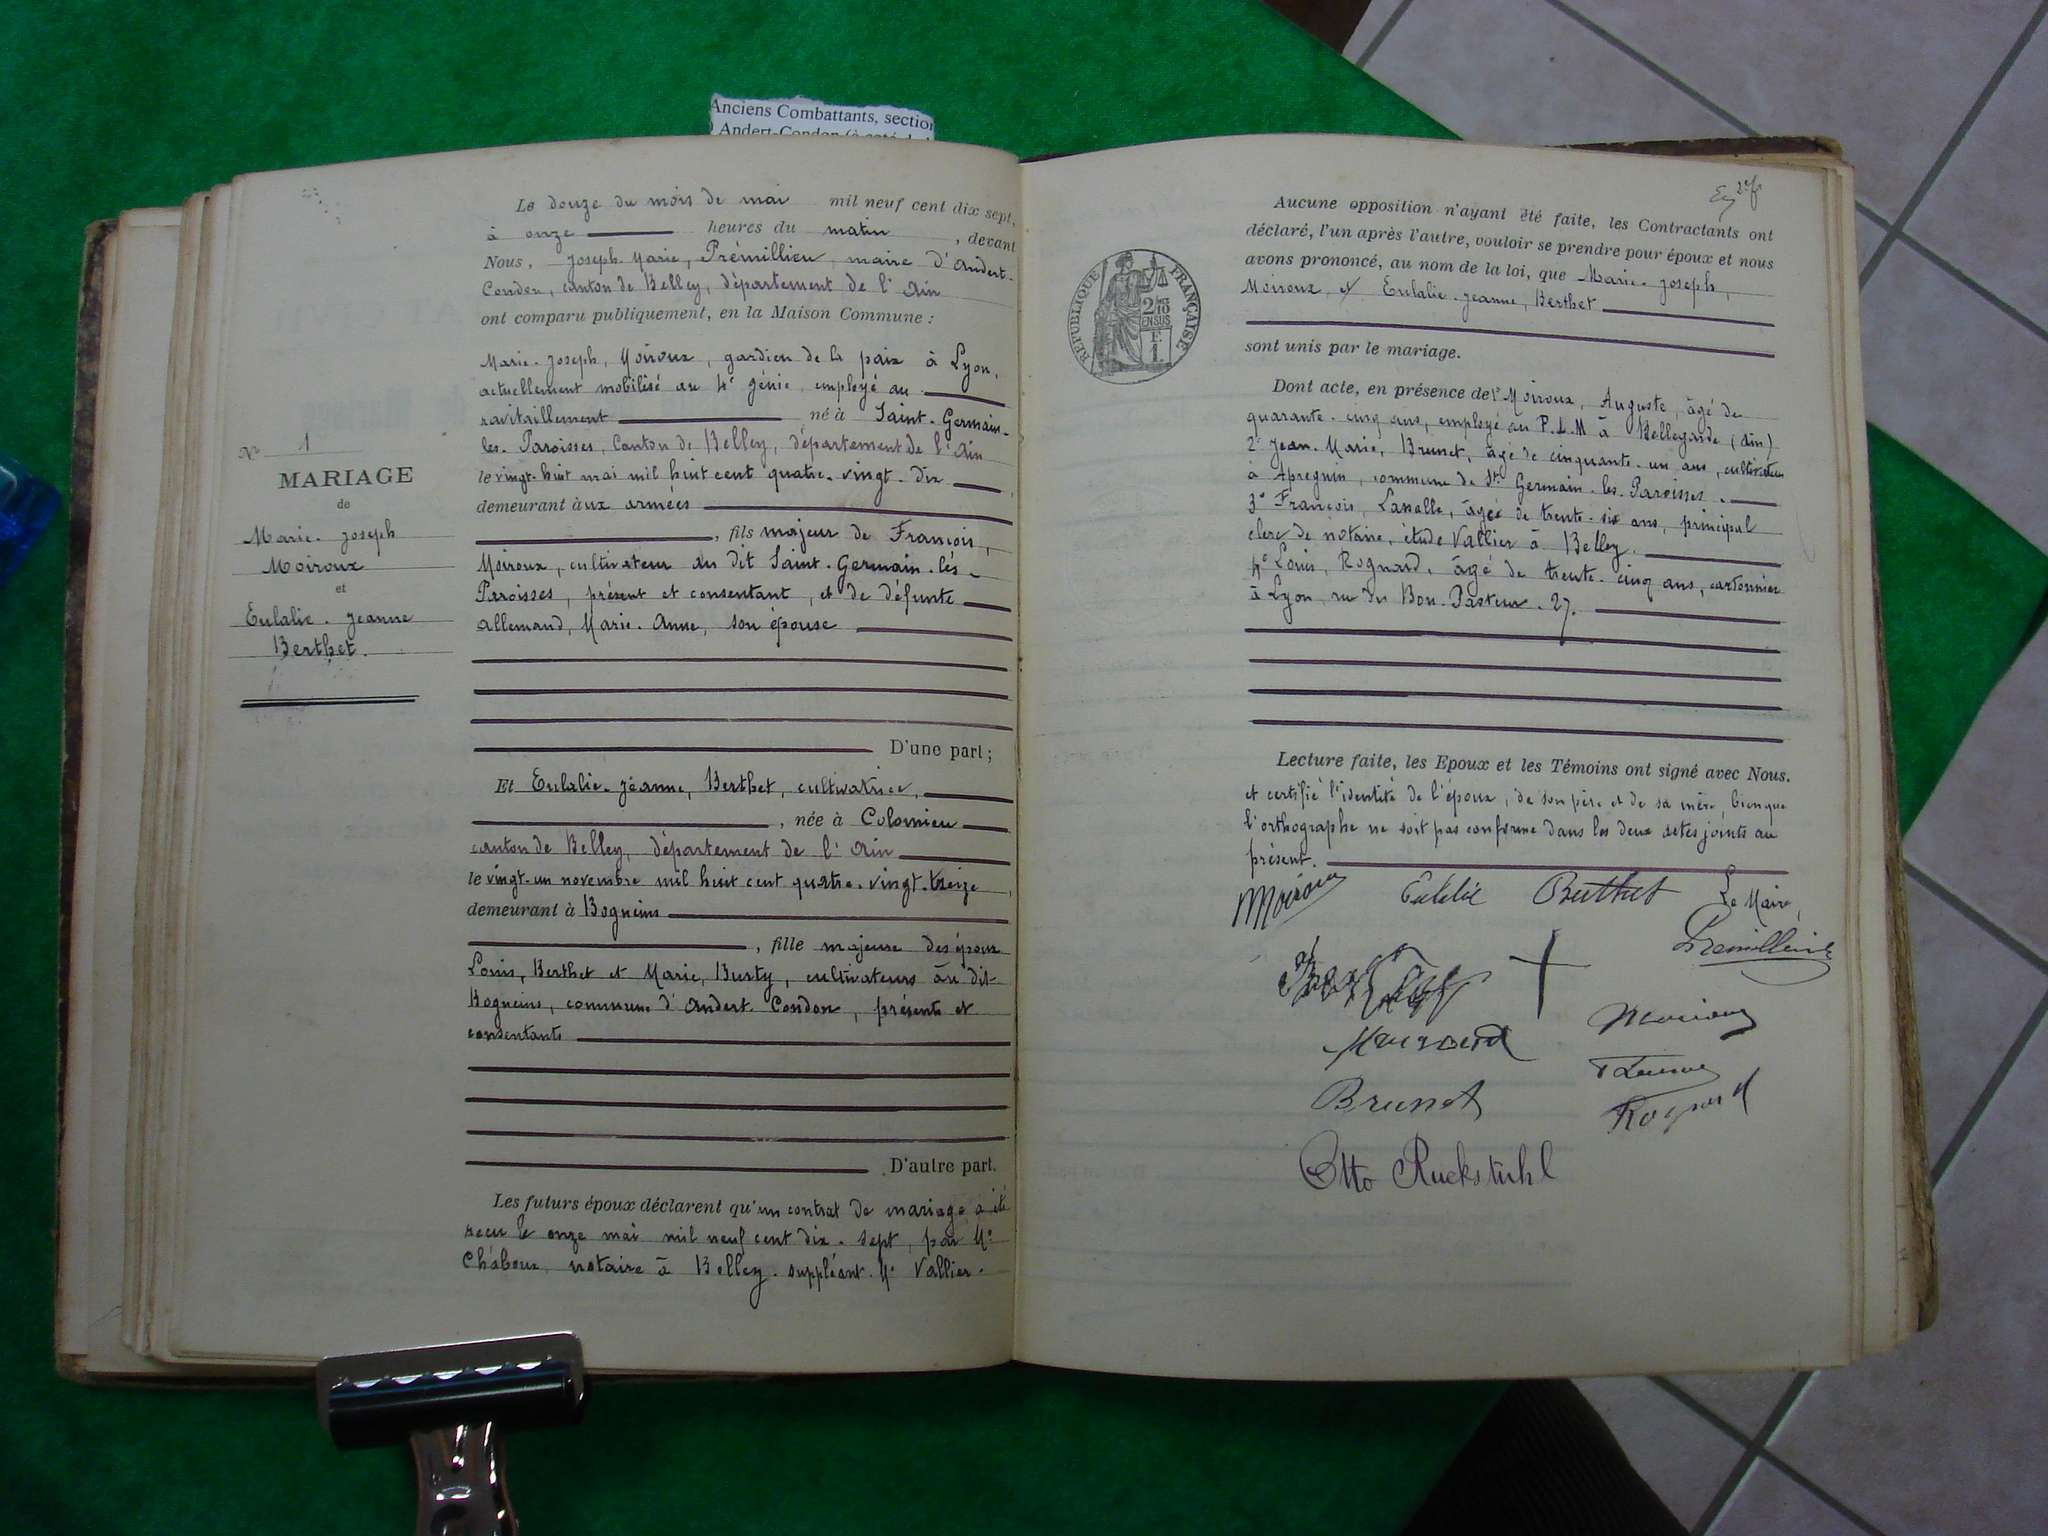 Anciens Combattants, section
Andert-Condon (à coté de l
Le douze du mois de mai mil neuf cent dix sept,
à onze heures du matin, devant
Nous, Joseph-Marie, Prémillieu, maire d'Andert-
Condon, canton de Belley, département de l'Ain
ont comparu publiquement, en la Maison Commune :
Marie-Joseph, Moiroux, gardien de la paix à Lyon,
actuellement mobilisé au 4e génie, employé au
ravitaillement né à Saint-Germain-
les-Paroisses, Canton de Belley, département de l'Ain
le vingt-huit mai mil huit cent quatre-vingt-dix
demeurant aux armées
, fils majeur de François,
Moiroux, cultivateur au dit Saint-Germain-lès-
Paroisses, présent et consentant, et de défunte
Allemand, Marie-Anne, son épouse
D'une part ;
Et Eulalie-Jeanne, Berthet, cultivatrice,
, née à Colomieu
canton de Belley, département de l'Ain
le vingt-un novembre mil huit cent quatre-vingt-treize
demeurant à Bogneins
, fille majeure des époux
Louis, Berthet et Marie, Burty, cultivateurs au dit-
Bogneins, commune d'Andert-Condon, présents et
consentants
D'autre part.
Les futurs époux déclarent qu'un contrat de mariage a été
recu le onze mai mil neuf cent dix-sept, par Me
Chaboux, notaire à Belley, suppléant Me Vallier.
No 1
MARIAGE
de
Marie-Joseph
Moiroux
et
Eulalie-Jeanne
Berthet.
Aucune opposition n'ayant été faite, les Contractants ont
déclaré, l'un après l'autre, vouloir se prendre pour époux et nous
avons prononcé, au nom de la loi, que Marie-Joseph,
Moiroux, et Eulalie-Jeanne, Berthet
sont unis par le mariage.
RÉPUBLIQUE FRANÇAISE
2/10
EN SUS
F.
1.
Dont acte, en présence de 1° Moiroux, Auguste, âgé de
quarante-cinq ans, employé au P.L.M à Bellegarde (Ain)
2° Jean-Marie, Brunet, âgé de cinquante-un ans, cultivateur
à Apregnin, commune de St Germain-les-Paroisses.
3° François, Lasalle, âgé de trente-six ans, principal
clerc de notaire, étude Vallier à Belley.
4° Louis, Rognard, âgé de trente-cinq ans, cartonnier
à Lyon, rue du Bon-Pasteur-27.
Lecture faite, les Epoux et les Témoins ont signé avec Nous.
et certifié l'identité de l'époux, de son père et de sa mère bienque
l'orthographe ne soit pas conforme dans les deux actes joints au
présent.
Moiroux Eulalie Berthet Le Maire,
Prémillieu
Moiroux
Brunet
Rognard
Otto Ruckstühl